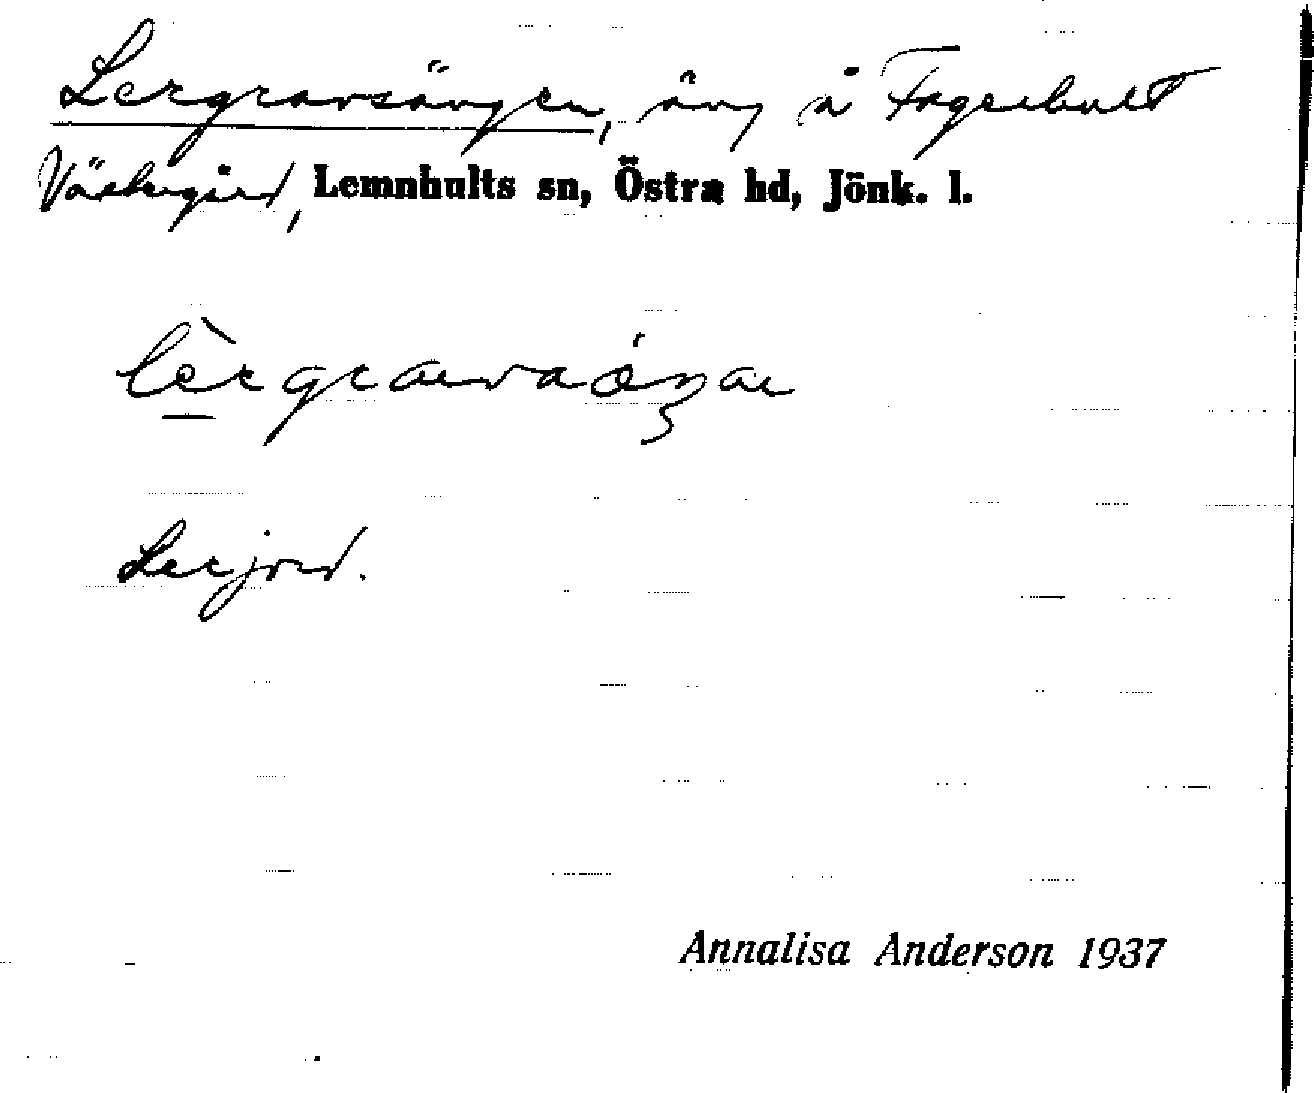 Lergravsängen, äng å Fagerhult
Västergård, Lemnhults sn, Östra hd, Jönk. l.
Lerjord.
Annalisa Anderson 1937